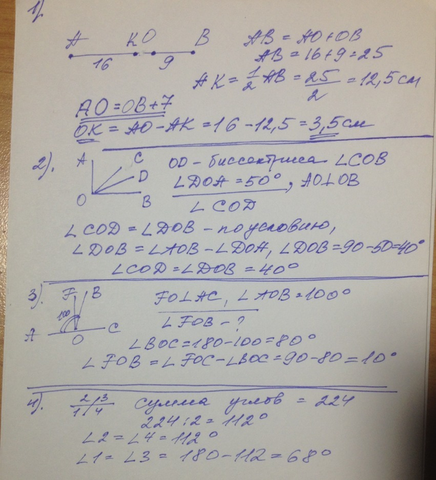 1)
А К О В
16 9
АВ = АО + ОВ
АВ = 16 + 9 = 25
АК = 1/2 АВ = 25/2 = 12,5 см
АО = ОВ + 7
ОК = АО - АК = 16 - 12,5 = 3,5 см
2).
А С D В О
OD - биссектриса ∠COB
∠DOA = 50°, AO⊥OB
∠COD
∠COD = ∠DOB - по условию,
∠DOB = ∠AOB - ∠DOA, ∠DOB = 90 - 50 = 40°
∠COD = ∠DOB = 40°
3).
F B
100
A O C
FO⊥AC, ∠AOB = 100°
∠FOB - ?
∠BOC = 180 - 100 = 80°
∠FOB = ∠FOC - ∠BOC = 90 - 80 = 10°
4).
2 3
1 4
сумма углов = 224
224 : 2 = 112°
∠2 = ∠4 = 112°
∠1 = ∠3 = 180 - 112 = 68°